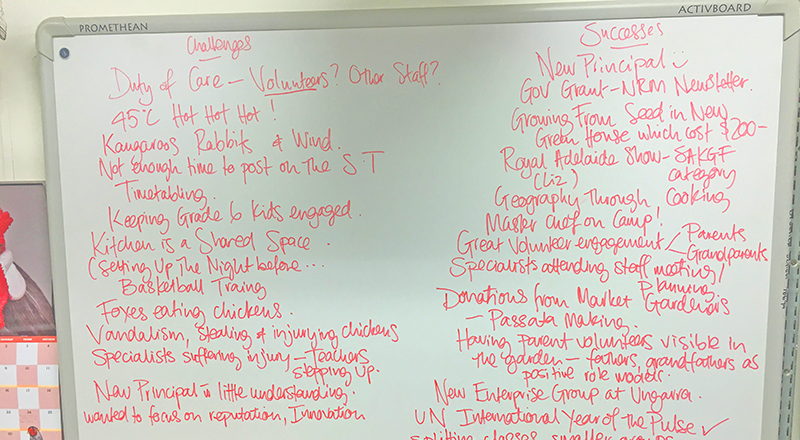 PROMETHEAN
ACTIVBOARD
Challenges
Duty of Care – Volunteers? Other Staff?
45°C Hot Hot Hot!
Kangaroos Rabbits & Wind.
Not enough time to post on the S T
Timetabling.
Keeping Grade 6 kids engaged.
Kitchen is a Shared Space.
(Setting Up The Night before...
Basketball Training
Foxes eating chickens.
Vandalism, stealing & injurying chickens
Specialists suffering injury – Teachers
stepping up.
New Principal little understanding.
wanted to focus on reputation, Innovation
Successes
New Principal
Gov Grant – NRM Newsletter.
Growing From Seed in New
Green House which cost $200-
Royal Adelaide Show – SAKGF
(Liz) category
Geography Through Cooking
Master chef on Camp!
Great Volunteer engagement Parents
Grandparents
Specialists attending staff meeting/
Planning
Donations from Market Gardeners
– Passata Making.
Having Parent volunteers visible in
the garden – fathers, grandfathers as
positive role models.
New Enterprise Group at Ungarra.
UN International Year of the Pulse ✓
splitting classes smaller groups